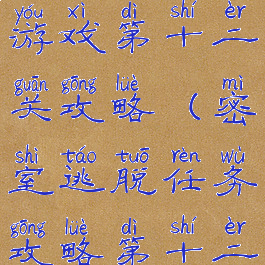 yóu xì dì shí èr
游戏第十二
guān gōng lüè mì
关攻略（密
shì táo tuō rèn wù
室逃脱任务
gōng lüè dì shí èr
攻略第十二